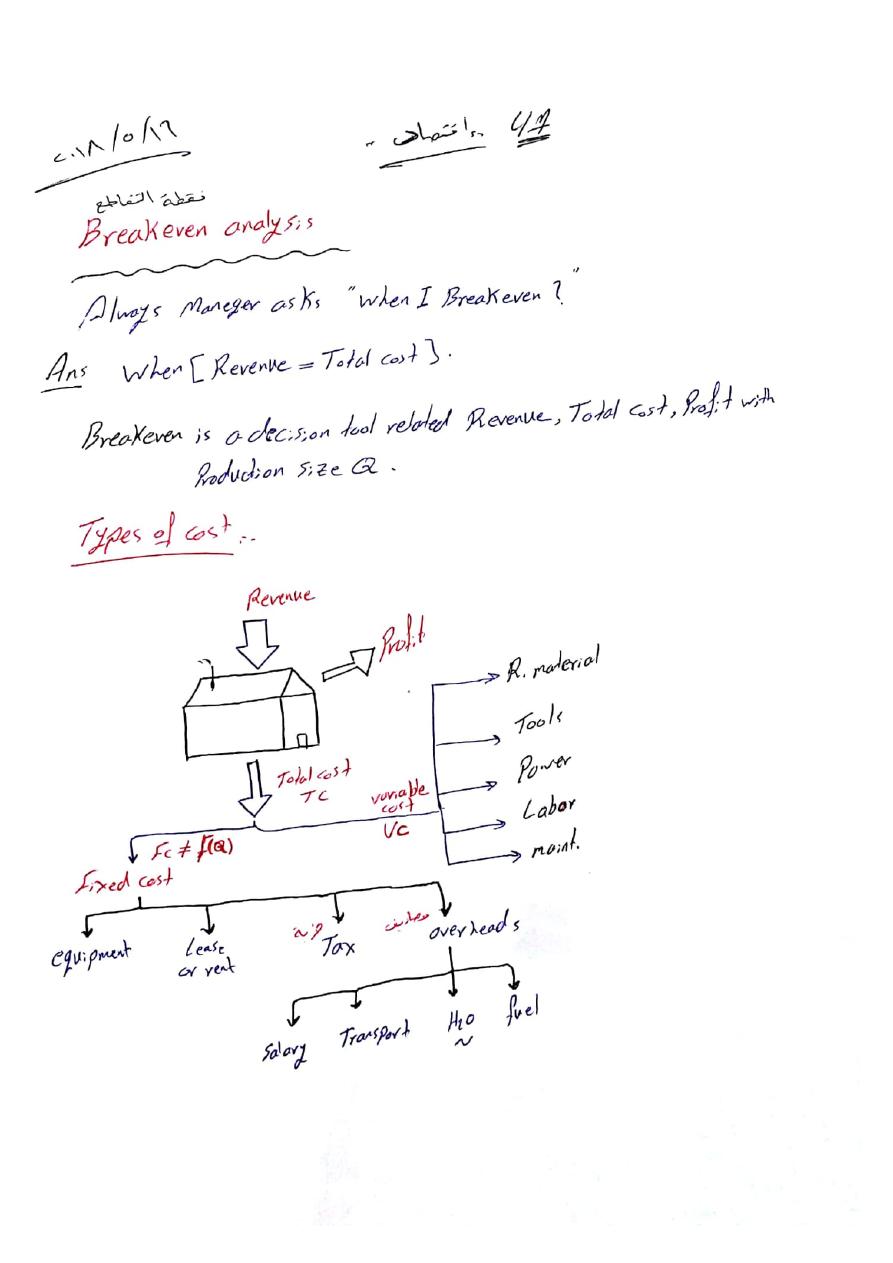 اقتصاد
٢٠١٨/٥/١٦
نقطة التقاطع
Breakeven analysis
Always Maneger asks "when I Breakeven ?"
Ans when [ Revenue = Total cost ].
Breakeven is a decision tool related Revenue, Total cost, Profit with
Production size Q .
Types of cost :-
Revenue
Profit
R. material
Tools
Power
Labor
maint.
Total cost
TC
variable
cost
VC
Fc ≠ f(Q)
Fixed cost
equipment
Lease
or rent
Tax
مصاريف
overheads
Salary
Transport
H2O
fuel